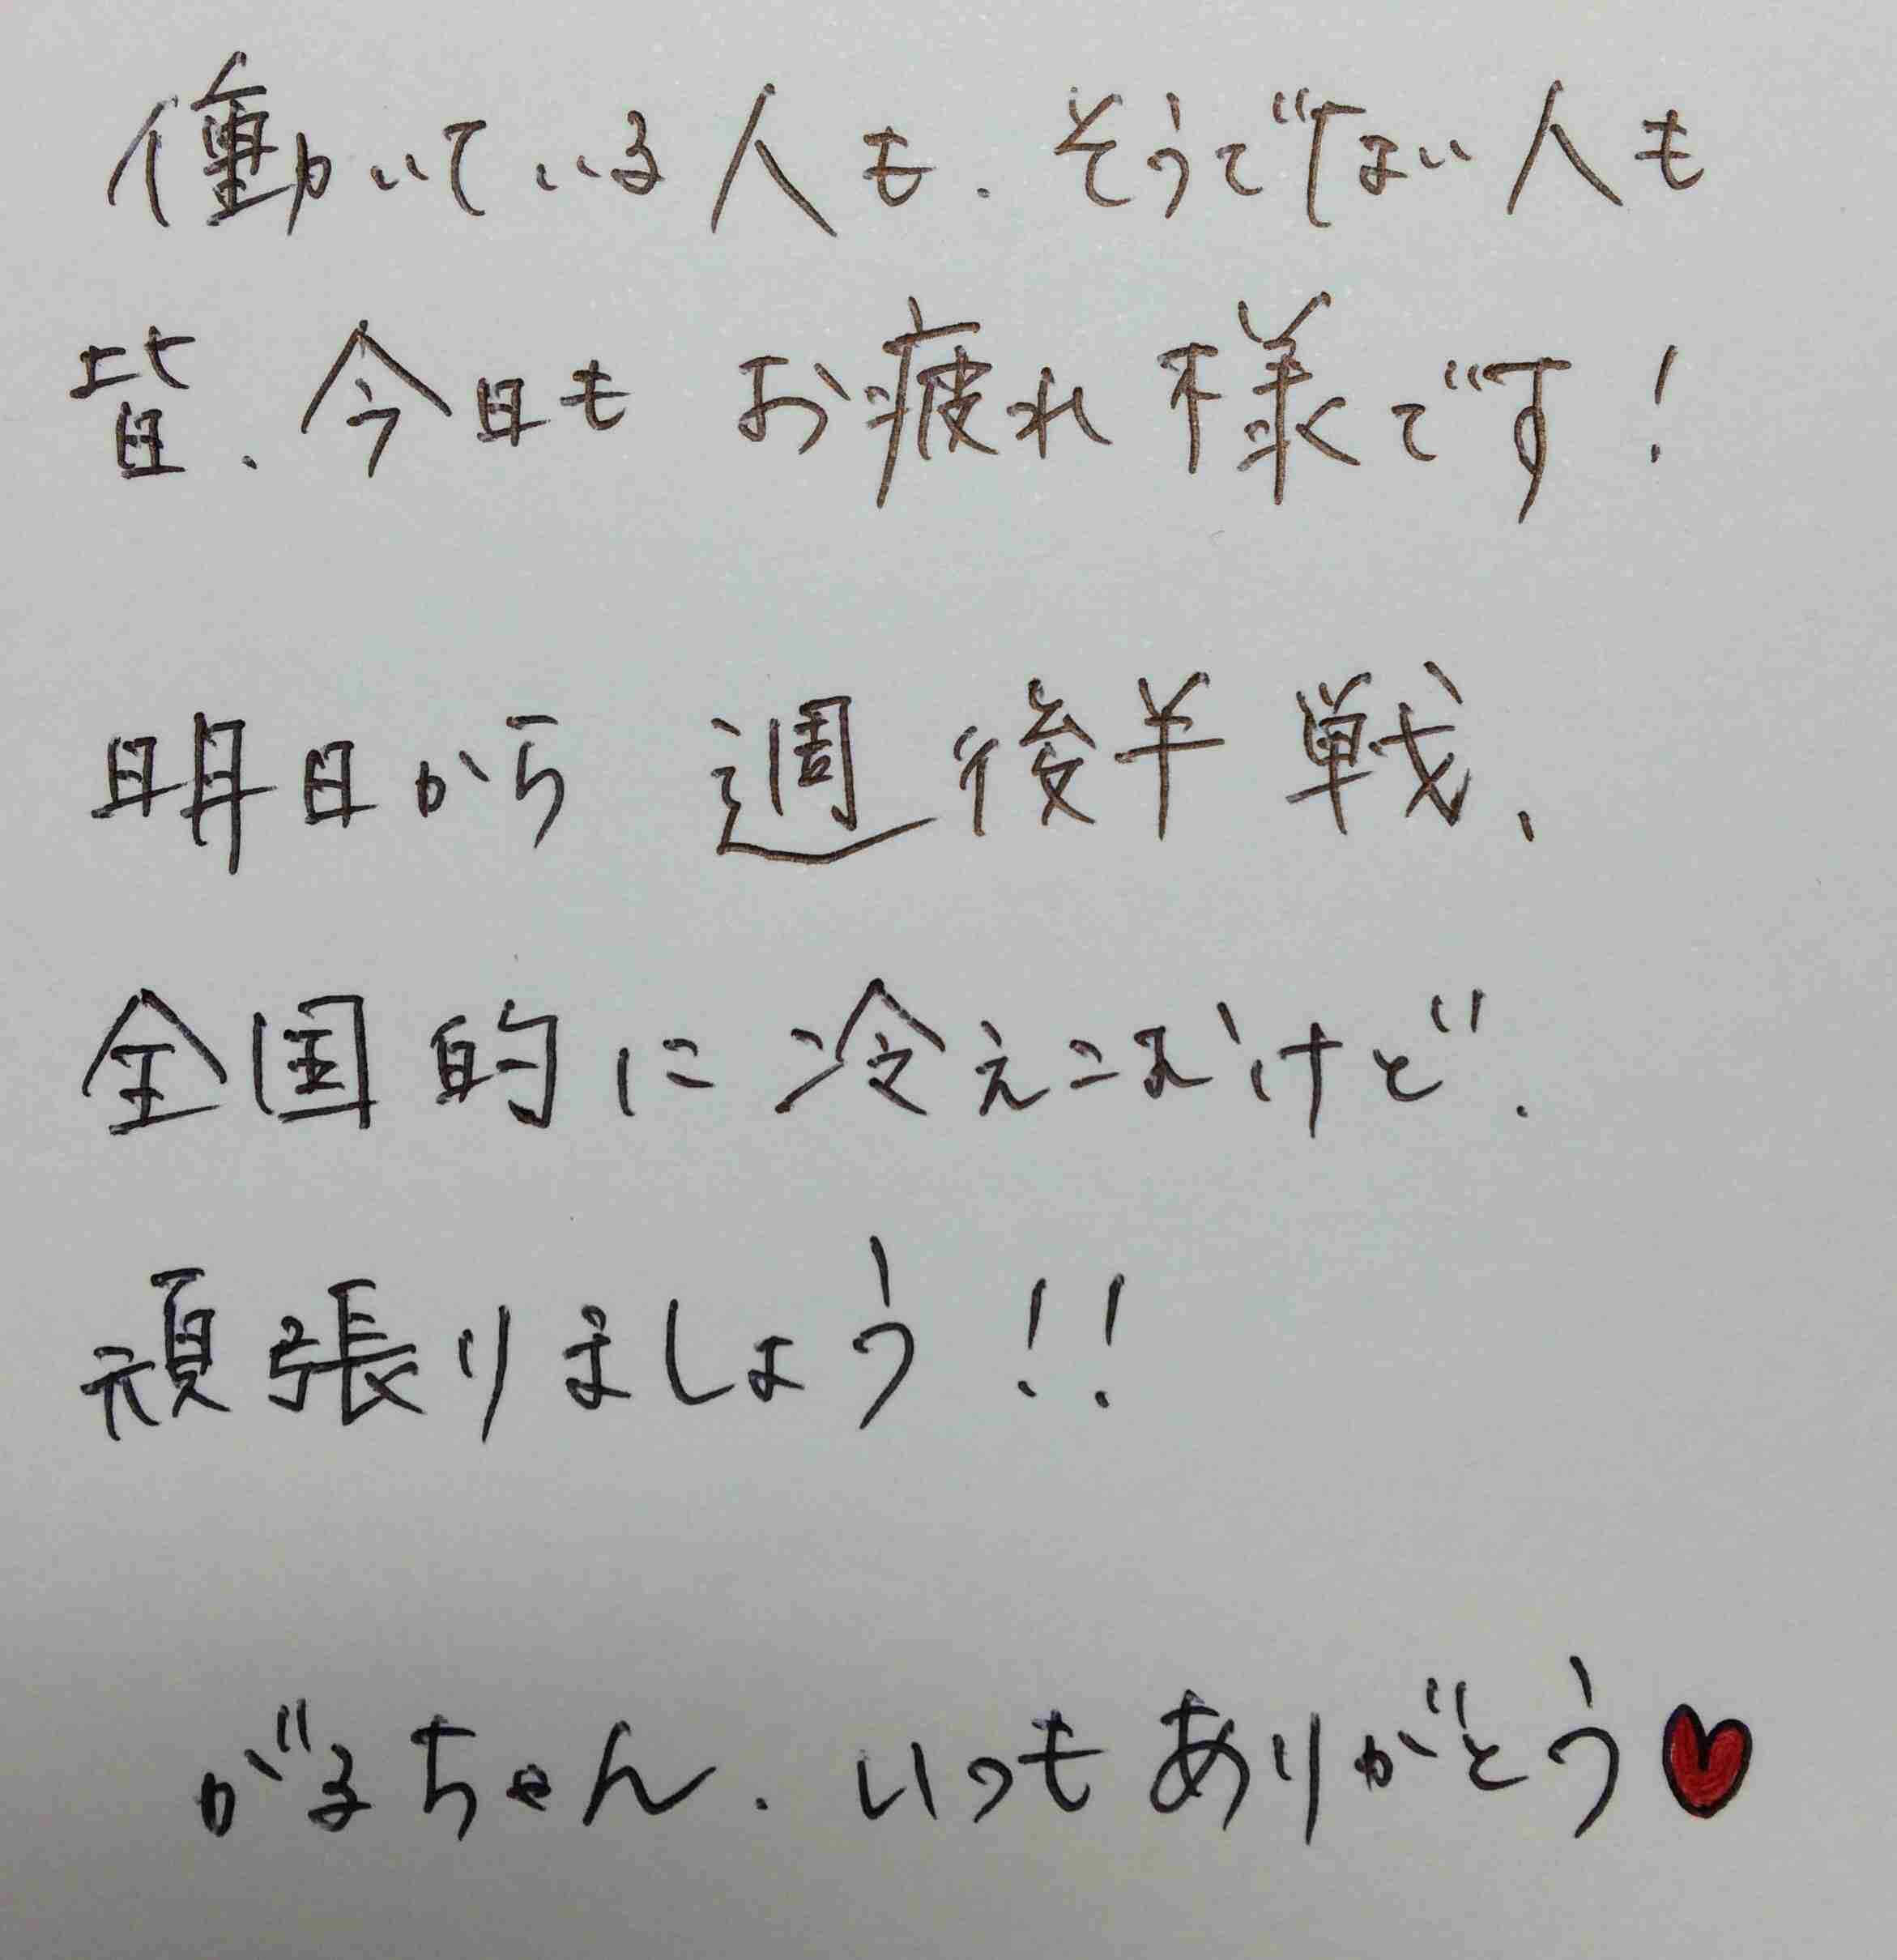 働いている人も、そうでない人も
皆、今日もお疲れ様です!
明日から週後半戦、
全国的に冷えこむけど、
頑張りましょう!!
がるちゃん、いつもありがとう♥